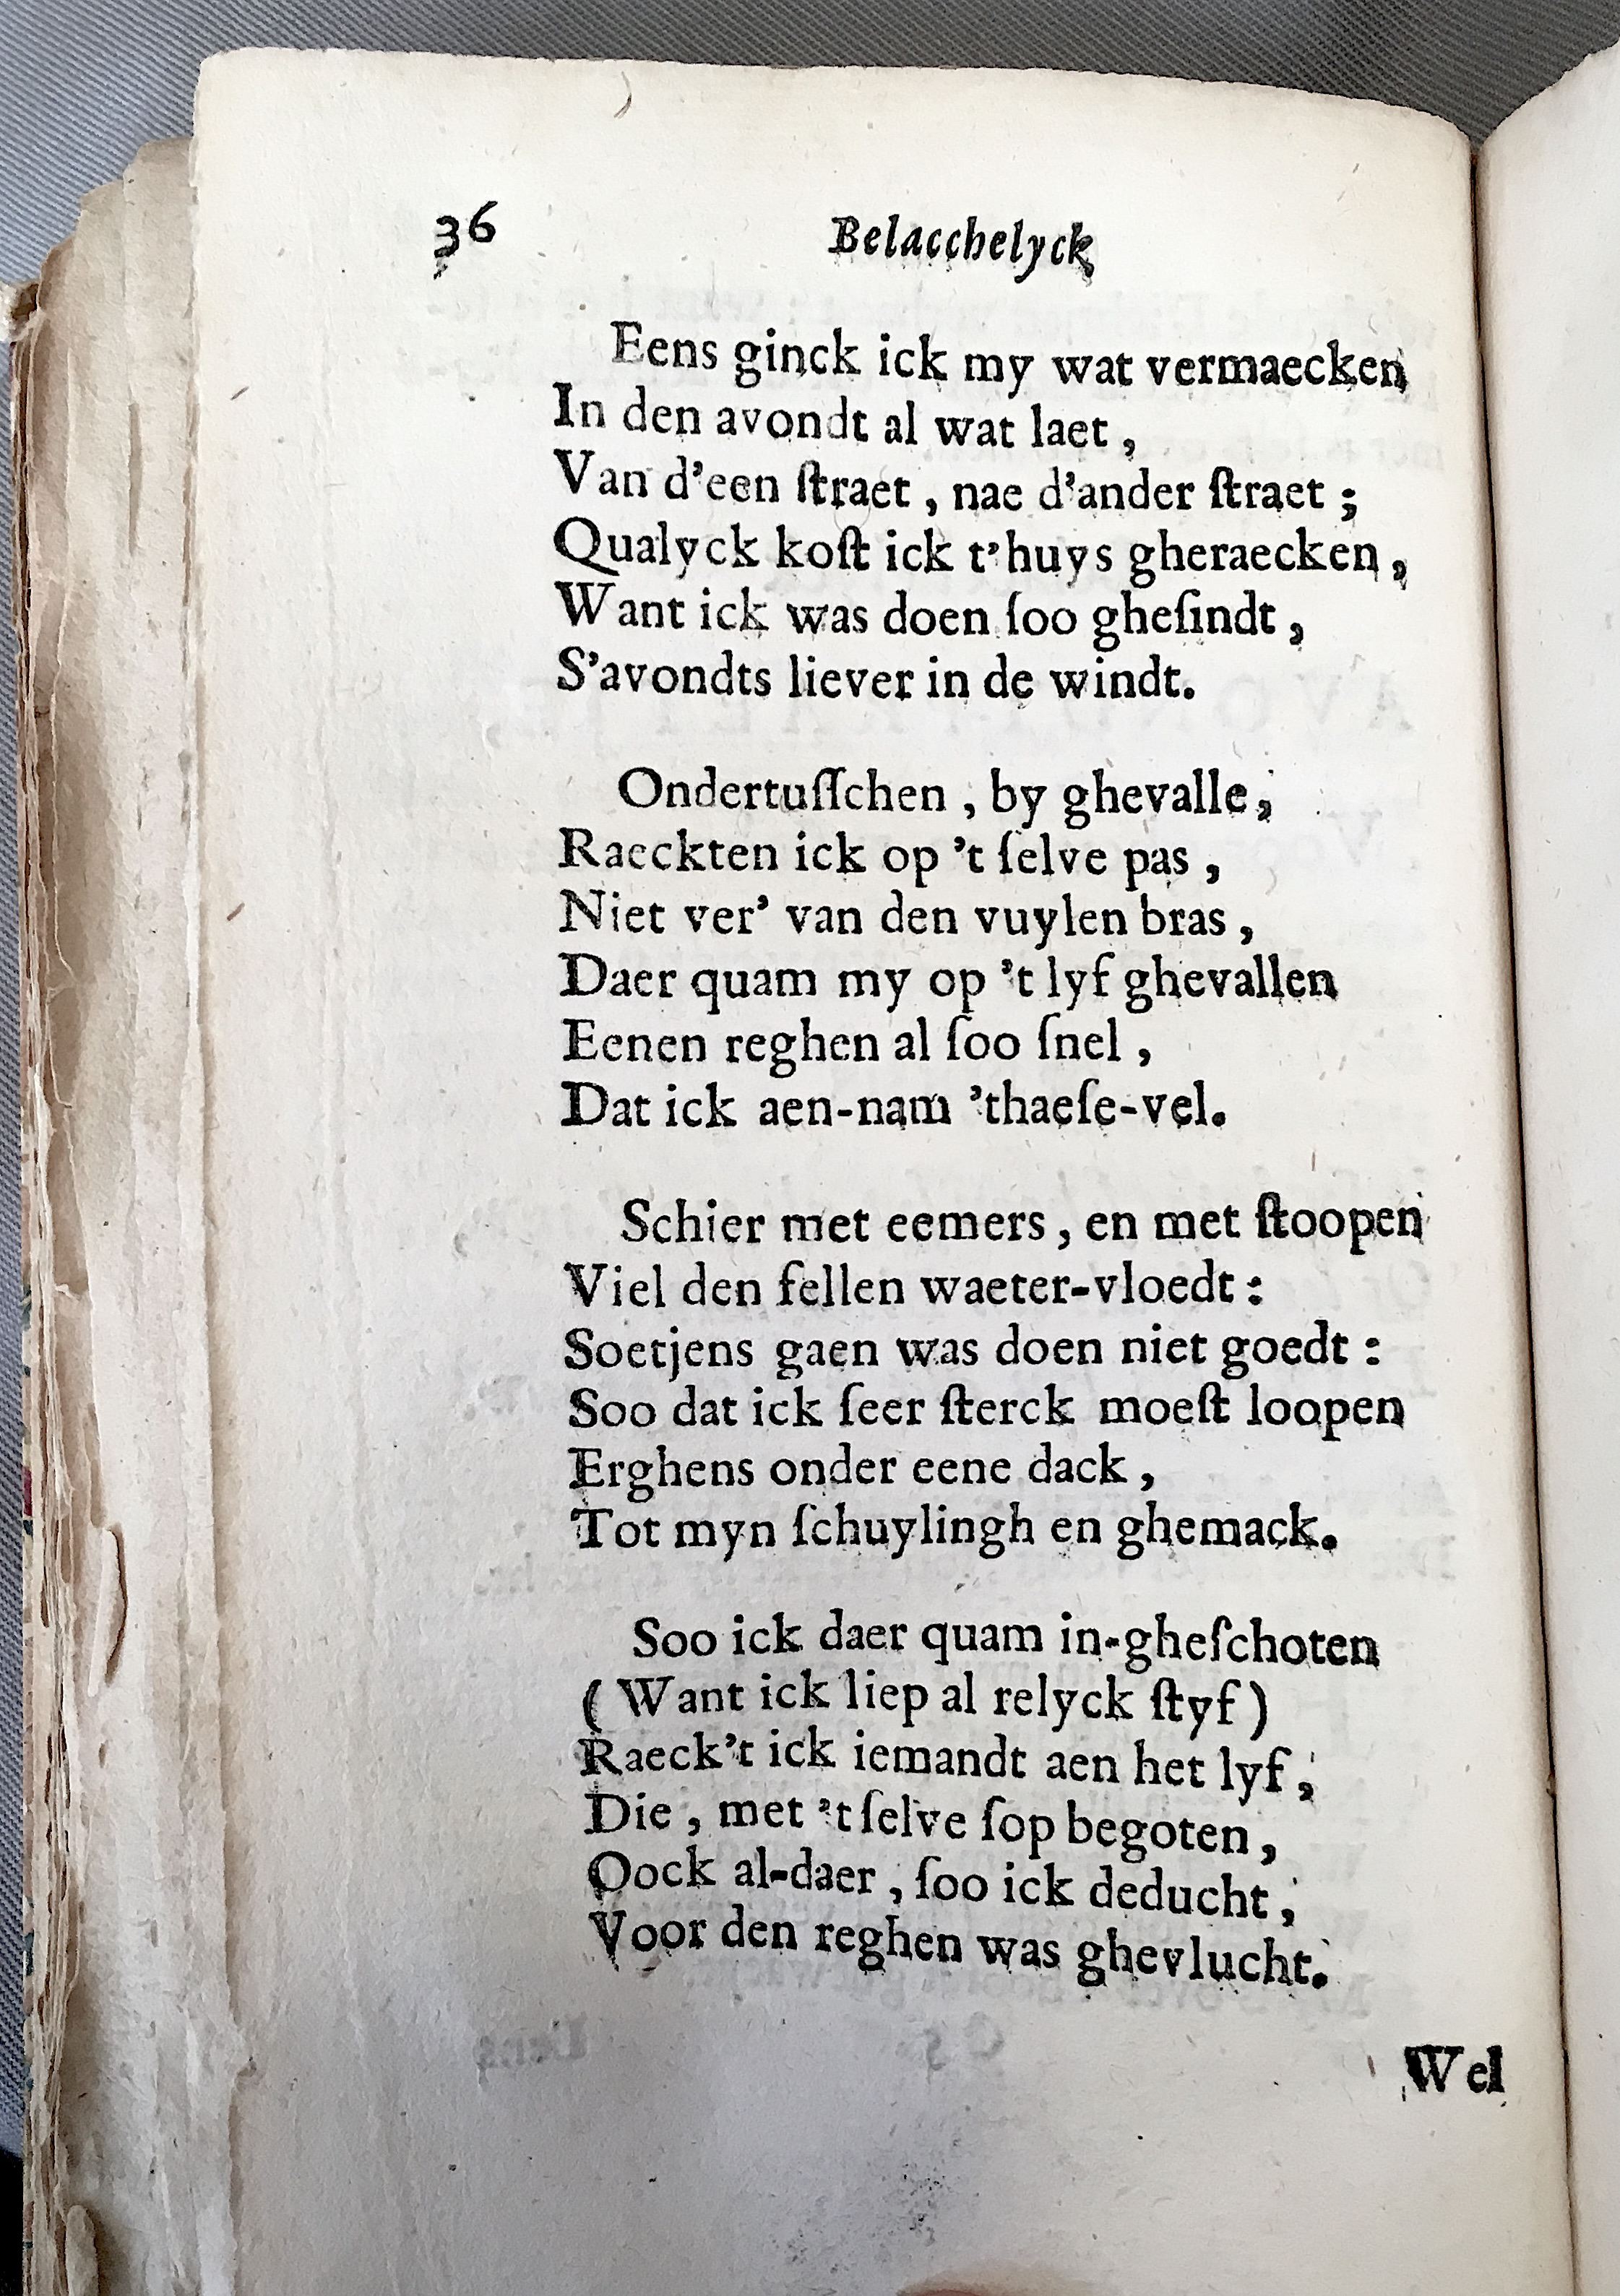 36 Belacchelyck
Eens ginck ick my wat vermaecken
In den avondt al wat laet ,
Van d'een ſtraet , nae d'ander ſtraet ;
Qualyck koſt ick t'huys gheraecken ,
Want ick was doen ſoo gheſindt ,
S'avondts liever in de windt.
Ondertuſſchen , by ghevalle ,
Raeckten ick op 't ſelve pas ,
Niet ver' van den vuylen bras ,
Daer quam my op 't lyf ghevallen
Eenen reghen al ſoo ſnel ,
Dat ick aen-nam 'thaeſe-vel.
Schier met eemers , en met ſtoopen
Viel den fellen waeter-vloedt :
Soetjens gaen was doen niet goedt :
Soo dat ick ſeer ſterck moeſt loopen
Erghens onder eene dack ,
Tot myn ſchuylingh en ghemack.
Soo ick daer quam in-gheſchoten
( Want ick liep al relyck ſtyf )
Raeck't ick iemandt aen het lyf ,
Die , met 't ſelve ſop begoten ,
Oock al-daer , ſoo ick deducht ,
Voor den reghen was ghevlucht.
Wel